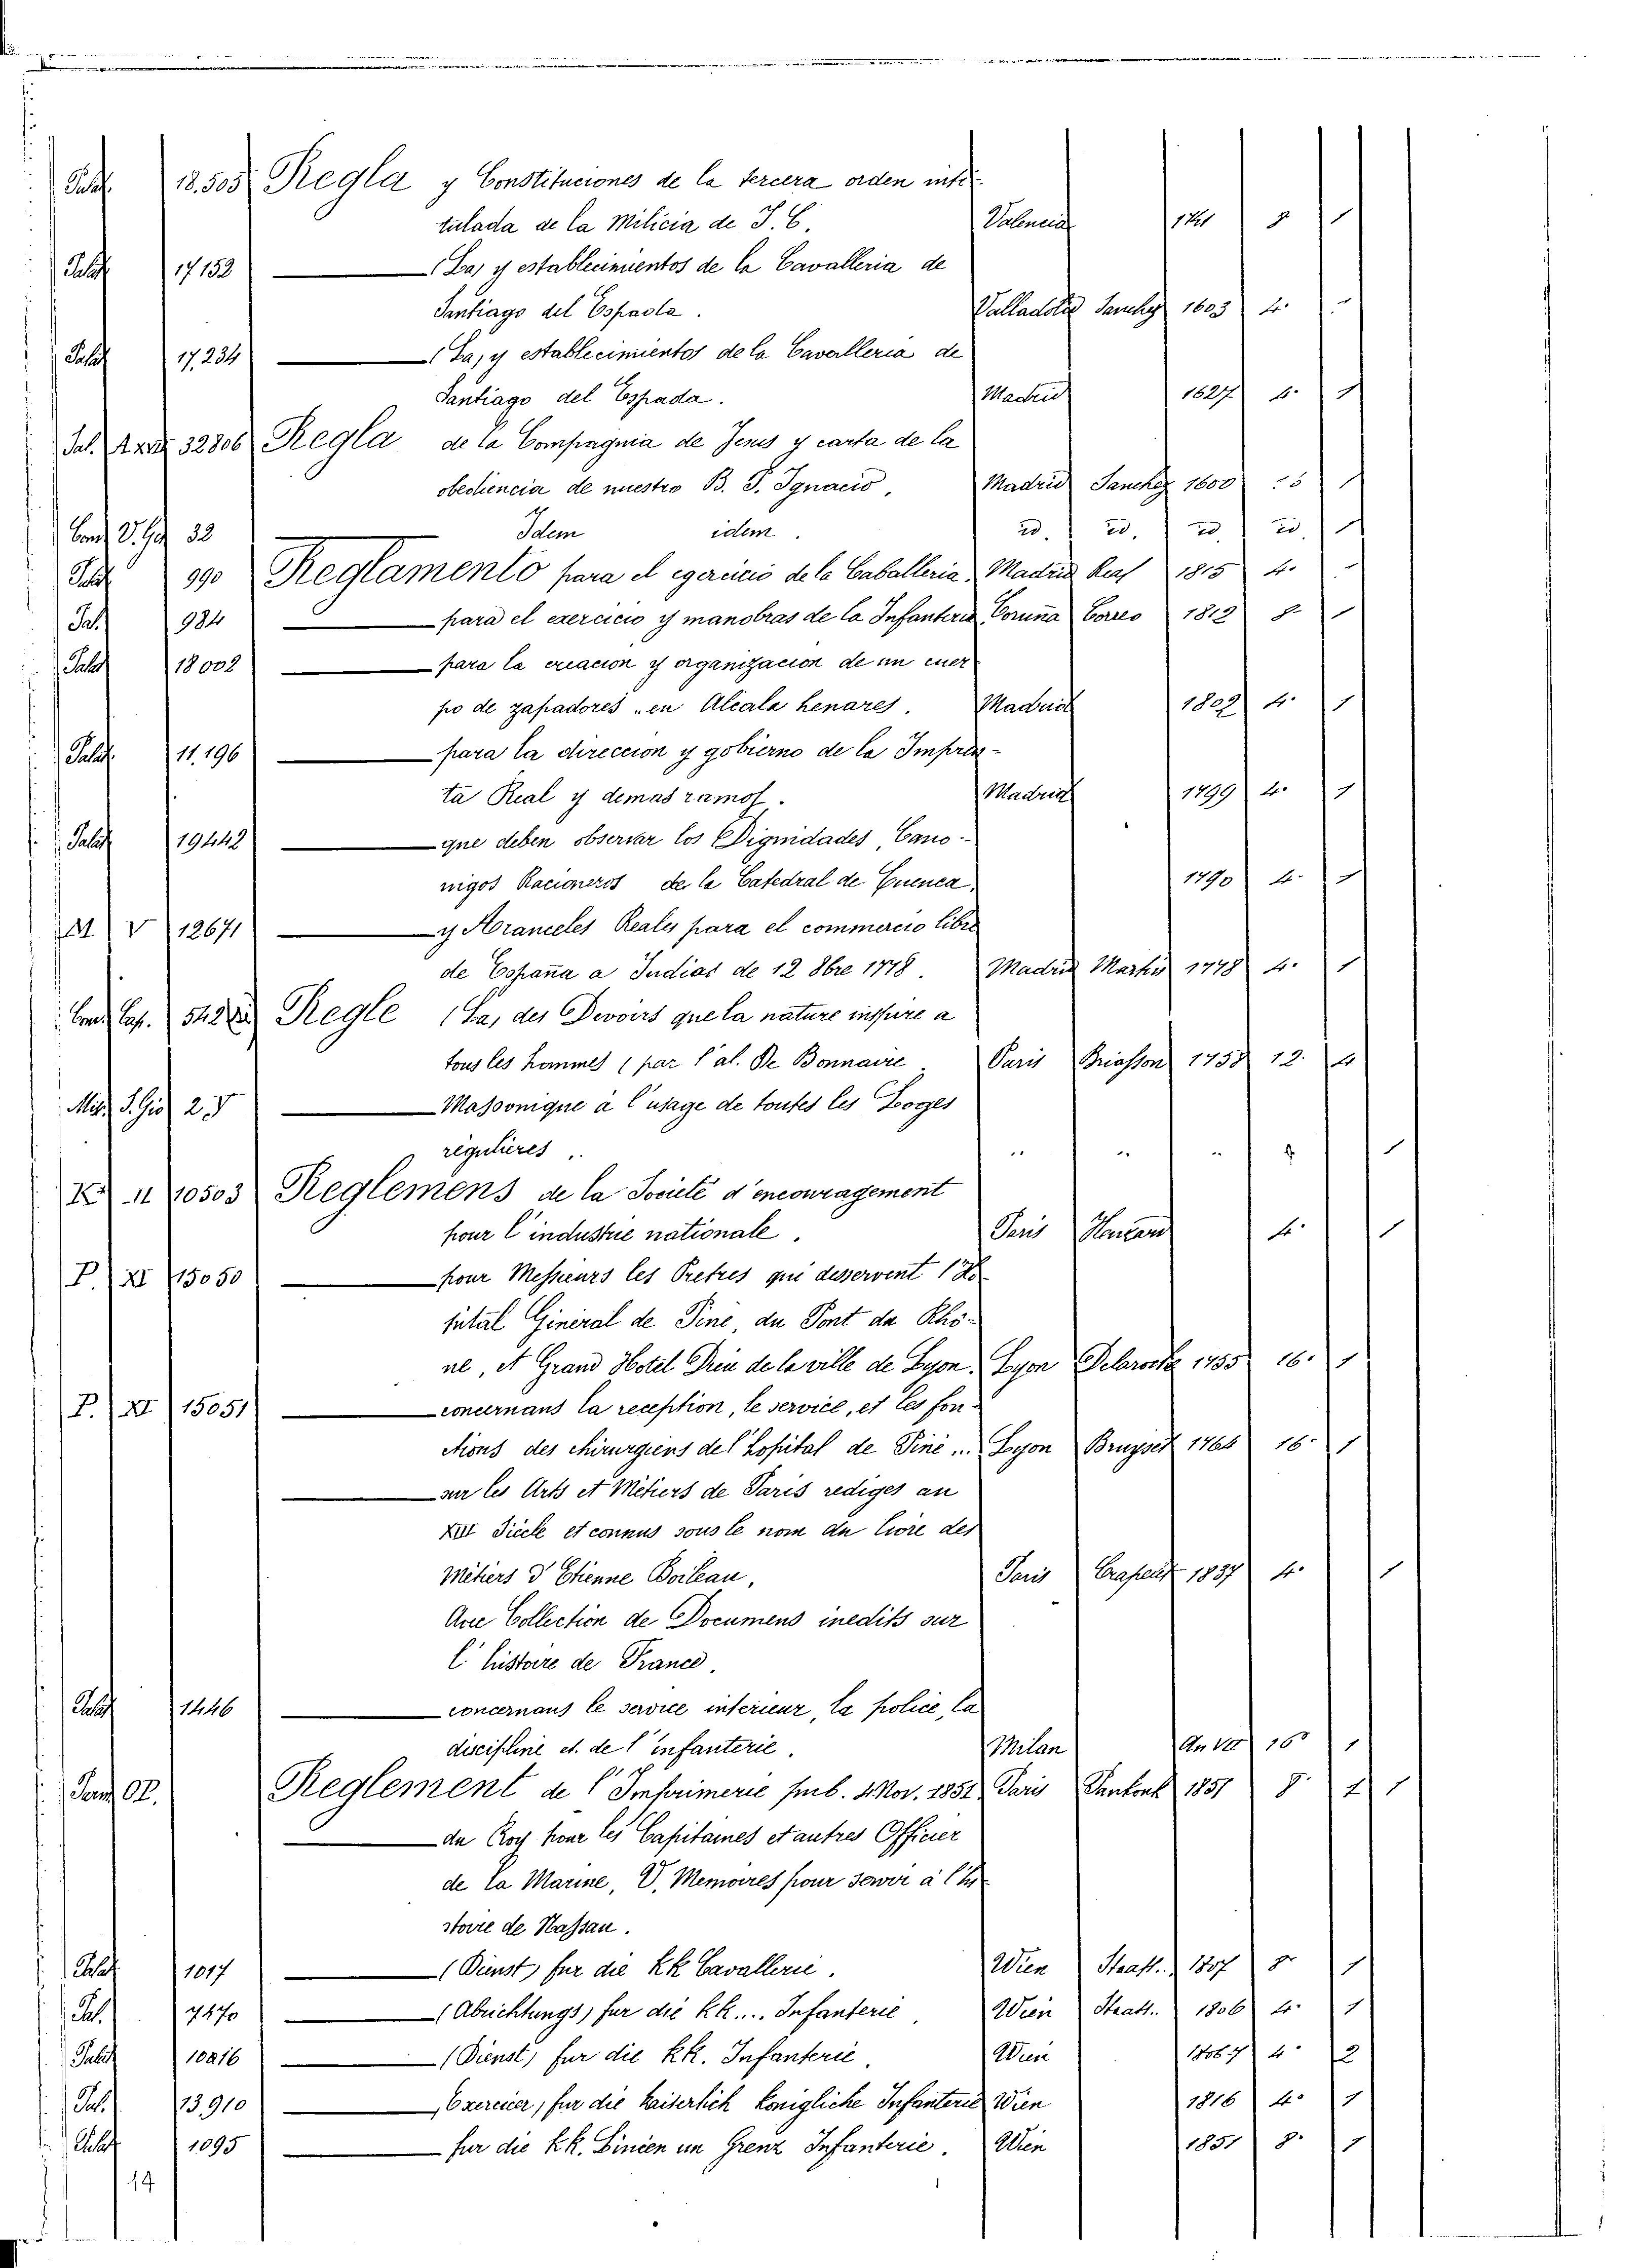 Palat. 18.505 Regla y Constituciones de la tercera orden inti-
tulada de la Milicia de J. C. Valencia 1741 8 1
Palat. 17152 — (La) y establecimientos de la Cavalleria de
Santiago del Espada. Valladolid Sanchez 1603 4. 1
Palat. 17,234 — (La, y establecimientos de la Cavalleria de
Santiago del Espada. Madrid 1627 4. 1
Sal. 32806 Regla de la Compagnia de Jesus y carta de la
obediencia de nuestro B. P. Ignacio, Madrid Sanchez 1600 1
Cons V. Ges 32 — Idem idem. id. id. id. id. 1
Palat. 990 Reglamento para el egercicio de la Caballeria, Madrid 1815 4.
Pal. 984 — para el exercicio y manobras de la Infanteria Coruña Correo 1812 8 1
Palat 18002 — para la creacion y organizacion de un cuer
po de zapadores "en Alcala henares. Madrid 1802 4. 1
Palat. 11,196 — para la direccion y gobierno de la Impren-
ta Real y demas ramos. Madrid 1799 4. 1
Palat 19442 — que deben observar los Dignidades, Cano-
nigos Racioneros de la Catedral de Cuenca, 1790 4. 1
V 12671 — y Aranceles Reales para el commercio libre
de España a Indias de 12 8bre 1778. Madrid Martin 1778 4. 1
Cons. Cap. Regle (La, des Devoirs que la nature inspire a
tous les hommes (par l'al. De Bonnaire. Paris Briasson 1758 12. 4
Mis. S. Gio 2.V — Massonique à l'usage de toutes les Loges
régulières, " " " 8 1
X II 10503 Reglemens de la Societé d'encouragement
pour l'industrie nationale. Paris 4. 1
P. XI 15050 — pour Messieurs les Pretres qui desservent l'Ho
pital General de Pine, du Pont da Rhô-
ne, et Grand Hotel Dieu de la ville de Lyon. Lyon Delaroche 1755 16. 1
P. XI 15051 — concernans la reception, le service, et les fon-
ctions des chirurgiens de l'hopital de Piné... Lyon Bruyset 1766 16. 1
— sur les Arts et Métiers de Paris rediges an
XIII Siecle et connus sous le nom du livre des
Métiers d'Etienne Boileau, Paris Crapelet 1837 4. 1
Ave Collection de Documens inedits sur
l'histoire de France.
Palat 1446 — concernans le service interieur, la police, la
discipline et. de l'infanterie. Milan An VII 16° 1
Pens OP. Reglement de l'Imprimerie pub. 4. Nov. 1851 Paris 1851 8. 1
— du Roy pour les Capitaines et autres Officier
de la Marine, V. Memoires pour servir à l'hi
stoire de Nassau.
Palat 1017 — (Dienst, fur die KK Cavallerie. Wien Staatt. 1807 8. 1
Pal. 7470 — (Abrichtungs, fur die KK.... Infanterie, Wien Staatt.. 1806 4. 1
Palat — (Dienst, fur die KK. Infanterie, Wien 4. 2
Pal. 13910 — Exercier, fur die kaiserlich Konigliche Infanterie Wien 1816 4. 1
Palat 1095 — fur die KK. Linien un Grenz Infanterie. Wien 1851 8. 1
14